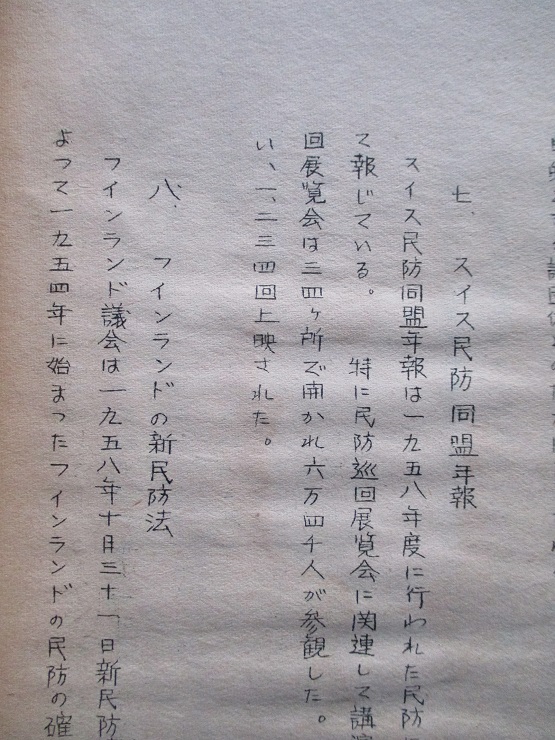 七、スイス民防同盟年報
スイス民防同盟年報は一九五八年度に行われた民防
て報じている。特に民防巡回展覧会に関連して講演
回展覧会は三四ヶ所で開かれ六万四千人が参観した。
い、一、二三四回上映された。
八、フインランドの新民防法
フインランド議会は一九五八年十月三十一日新民防
よつて一九五四年に始まつたフインランドの民防の確